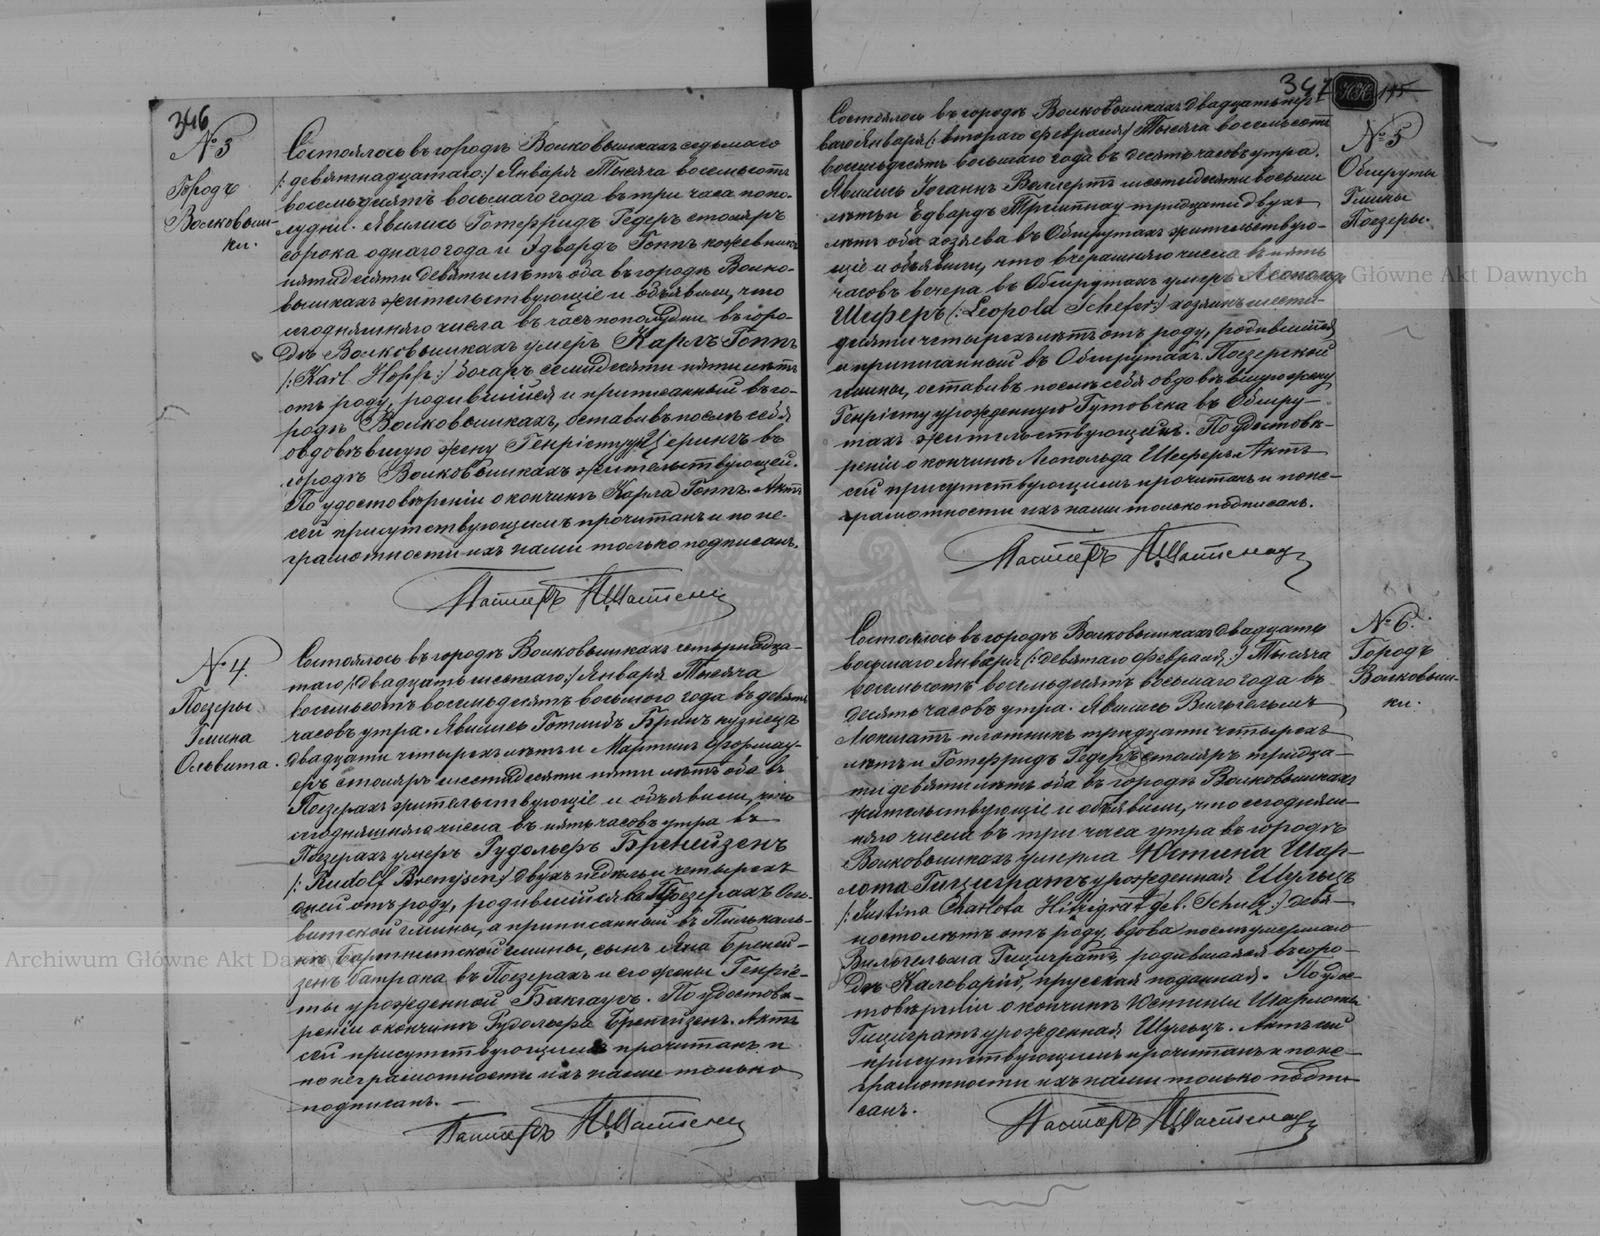 346
№ 3
Городъ
Волковыш-
ки.
Состоялось въ городѣ Волковышкахъ седьмаго
/: девятнадцатаго :/ Января Тысяча восемьсотъ
восемьдесятъ восьмаго года въ три часа попо-
лудни. Явились Готфридъ Гедеръ столяръ
сорока однаго года и Эдвардъ Гоппъ кожевникъ
пятидесяти девяти лѣтъ оба въ городѣ Волко-
вышкахъ жительствующіе и объявили, что
сегодняшняго числа въ часъ пополудни въ горо-
дѣ Волковышкахъ умеръ Карлъ Гоппъ
/: Karl Hopp :/ бочаръ семидесяти пяти лѣтъ
отъ роду, родившійся и приписанный въ го-
родѣ Волковышкахъ, оставивъ послѣ себя
овдовѣвшую жену Генріетту Церингъ въ
городѣ Волковышкахъ жительствующей.
По удостовѣреніи о кончинѣ Карла Гоппъ. Актъ
сей присутствующимъ прочитанъ и по не-
грамотности ихъ нами только подписанъ.
Пасторъ
№ 4.
Поезеры
Гмина
Ольвита.
Состоялось въ городѣ Волковышкахъ четырнадца-
таго /: двадцать шестаго :/ Января Тысяча
восемьсотъ восемьдесятъ восьмого года въ девять
часовъ утра. Явились Готлибъ Бринъ кузнецъ
двадцати четырехъ лѣтъ и Мартинъ
столяръ шестидесяти пяти лѣтъ оба въ
Поезерахъ жительствующіе и объявили, что
сегодняшняго числа въ пять часовъ утра въ
Поезерахъ умеръ Рудольфъ Бренейзенъ
/: Rudolf Brenejsen :/ двухъ недѣль и четырехъ
дней отъ роду, родившійся въ Поезерахъ Оль-
витской гмины, а приписанный въ Пилькаль-
нѣ Бартнитской гмины, сынъ Яна Бреней-
зенъ батрака въ Поезерахъ и его жены Генріе-
ты урожденной Бакгаузъ. По удостовѣ-
реніи о кончинѣ Рудольфа Бренейзенъ. Актъ
сей присутствующимъ прочитанъ и
по неграмотности ихъ нами только
подписанъ. —
Пасторъ
347 115
№ 5
Обшруты
Гмины
Поезеры.
Состоялось въ городѣ Волковышкахъ двадцать пер-
ваго Января /: втораго Февраля :/ Тысяча восемьсотъ
восемьдесятъ восьмаго года въ десять часовъ утра.
Явились Іоганнъ Веллертъ шестидесяти восьми
лѣтъ и Едвардъ тридцати двухъ
лѣтъ оба хозяева въ Обшрутахъ жительствую-
щіе и объявили, что вчерашняго числа въ пять
часовъ вечера въ Обшрутахъ умеръ Леопольдъ
Шеферъ /: Leopold Schefer :/ хозяинъ шести-
десяти четырехъ лѣтъ отъ роду, родившійся
и приписанный въ Обшрутахъ Поезерской
гмины, оставивъ послѣ себя овдовѣвшую жену
Генріету урожденную Гутовска въ Обшру-
тахъ жительствующимъ. По удостовѣ-
реніи о кончинѣ Леопольда Шеферъ Актъ
сей присутствующимъ прочитанъ и по не-
грамотности ихъ нами только подписанъ.
Пасторъ
№ 6.
Городъ
Волковыш-
ки.
Состоялось въ городѣ Волковышкахъ двадцать
восьмаго Января /: девятаго Февраля :/ Тысяча
восемьсотъ восемьдесятъ восьмаго года въ
десять часовъ утра. Явились Вильгельмъ
плотникъ тридцати четырехъ
лѣтъ и Готфридъ Гедеръ столяръ тридца-
ти девяти лѣтъ оба въ городѣ Волковышкахъ
жительствующіе и объявили, что сегодняш-
няго числа въ три часа утра въ городѣ
Волковышкахъ умерла Юстина Шар-
лота Гициратъ урожденная Шульцъ
/: Justina Charlota Hitzigrat geb. Schulz :/ девя-
носто лѣтъ отъ роду, вдова послѣ умершаго
Вильгельма Гициратъ, родившаяся въ горо-
дѣ Калваріи, прусская подданная. По удос-
товѣреніи о кончинѣ Юстины Шарлоты
Гициратъ урожденная Шульцъ. Актъ сей
присутствующимъ прочитанъ и по не-
грамотности ихъ нами только подпи-
санъ.
Пасторъ
Archiwum Główne Akt Dawnych
Archiwum Główne Akt Dawnych